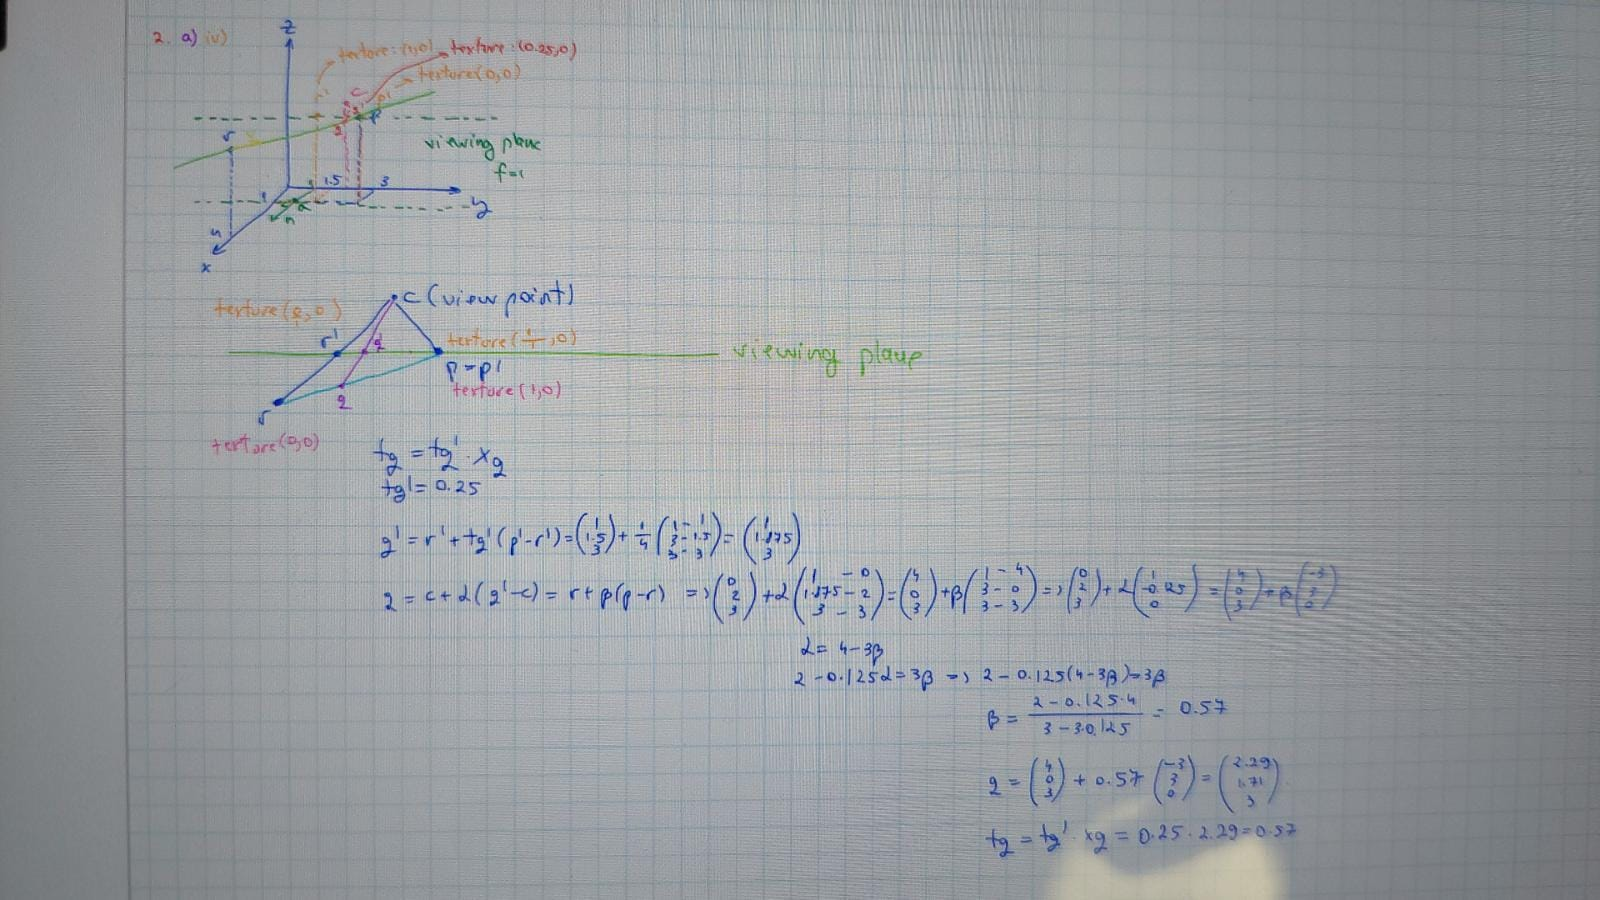 2. a) iv)
z
texture: (1,0)
texture: (0.25,0)
texture (0,0)
r'
c
p'
q
p
r
viewing plane
f=1
1
1.5
3
y
n
4
x
c (view point)
texture (0,0)
r'
q'
texture (1/1, 0)
viewing plane
p=p'
texture (1,0)
q
r
texture (0,0)
tq = tq' · xq
tq' = 0.25
q' = r' + tq' (p'-r') = (1 1.5 3) + 1/4 (1-1 3-1.5 3-3) = (1 1.875 3)
q = c + α(q'-c) = r + β(p-r) => (0 2 3) + α (1-0 1.875-2 3-3) = (4 0 3) + β (1-4 3-0 3-3) => (0 2 3) + α (1 -0.125 0) = (4 0 3) + β (-3 3 0)
α = 4-3β
2-0.125α = 3β => 2-0.125(4-3β) = 3β
β = (2-0.125·4)/(3-3·0.125) = 0.57
q = (4 0 3) + 0.57 (-3 3 0) = (2.29 1.71 3)
tq = tq' · xq = 0.25 · 2.29 = 0.57